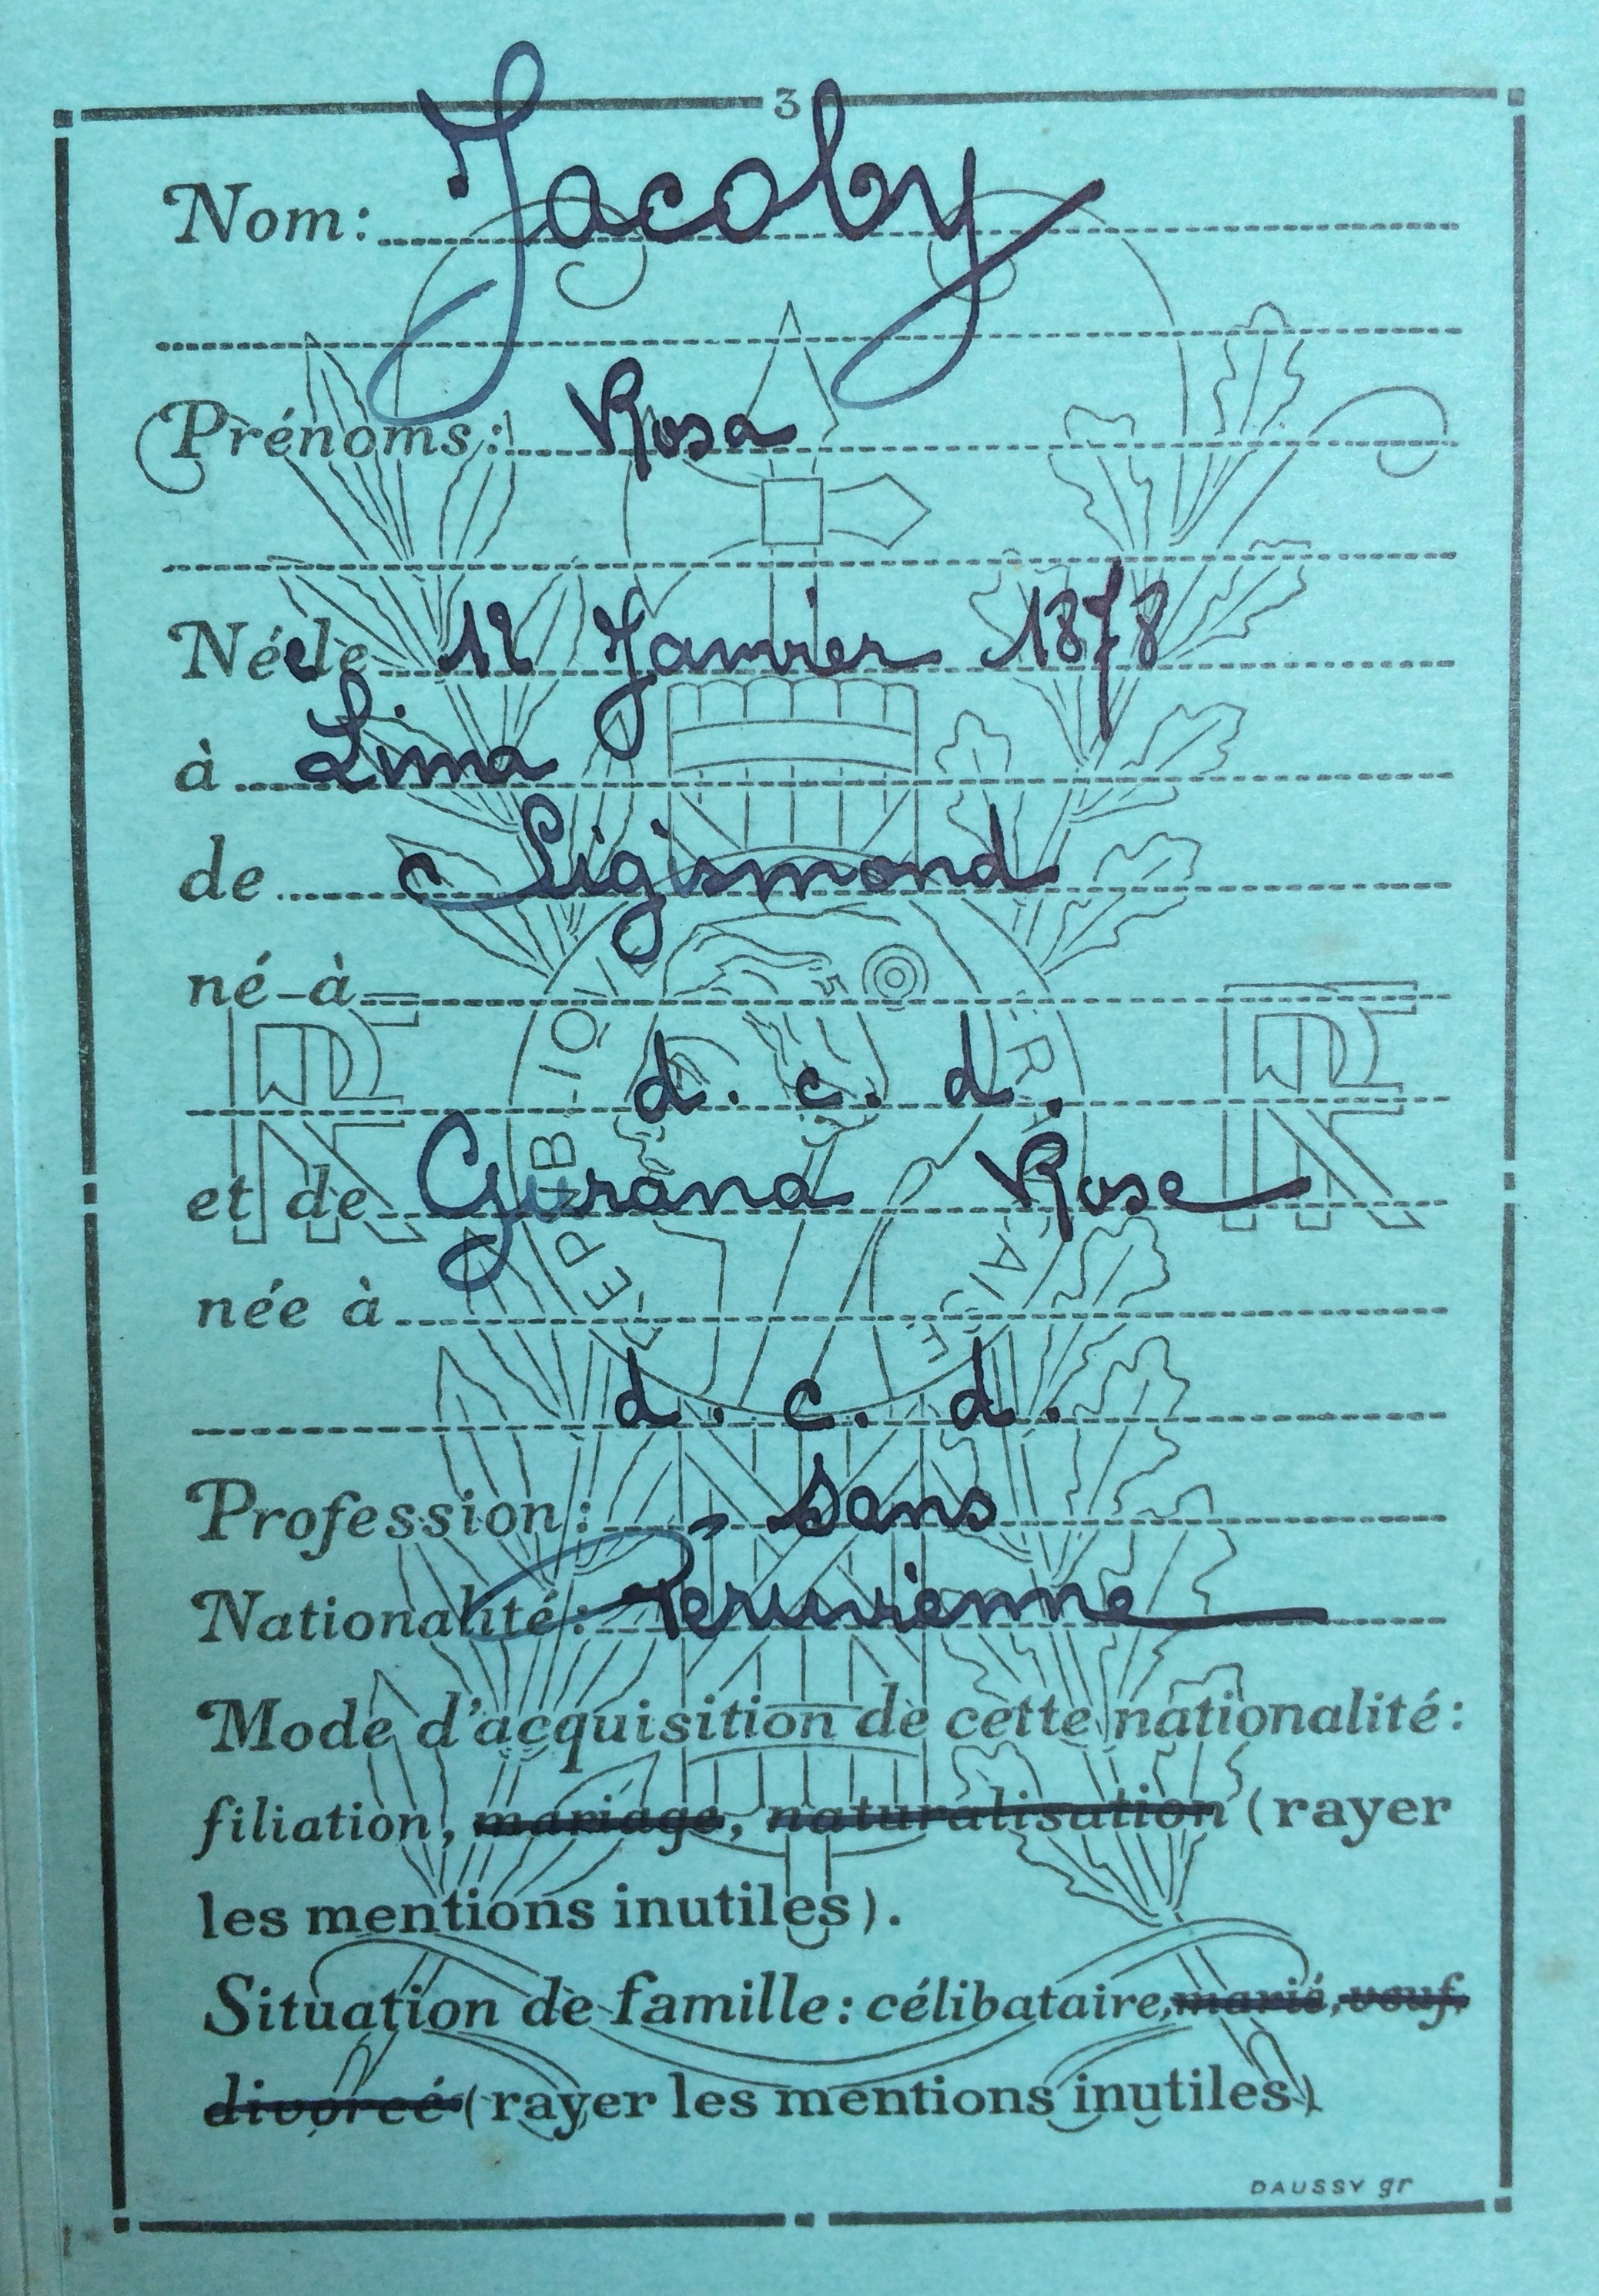 3
Nom: Jacoby
Prénoms: Rosa
Née le 12 Janvier 1878
à Lima
de Sigismond
né à
d. c. d.
et de Gyrana Rose
née à
d. c. d.
Profession: sans
Nationalité: Péruvienne
Mode d'acquisition de cette nationalité:
filiation, mariage, naturalisation (rayer
les mentions inutiles).
Situation de famille: célibataire, marié, veuf,
divorcé (rayer les mentions inutiles)
DAUSSY gr
RF RF
RÉPUBLIQUE FRANÇAISE